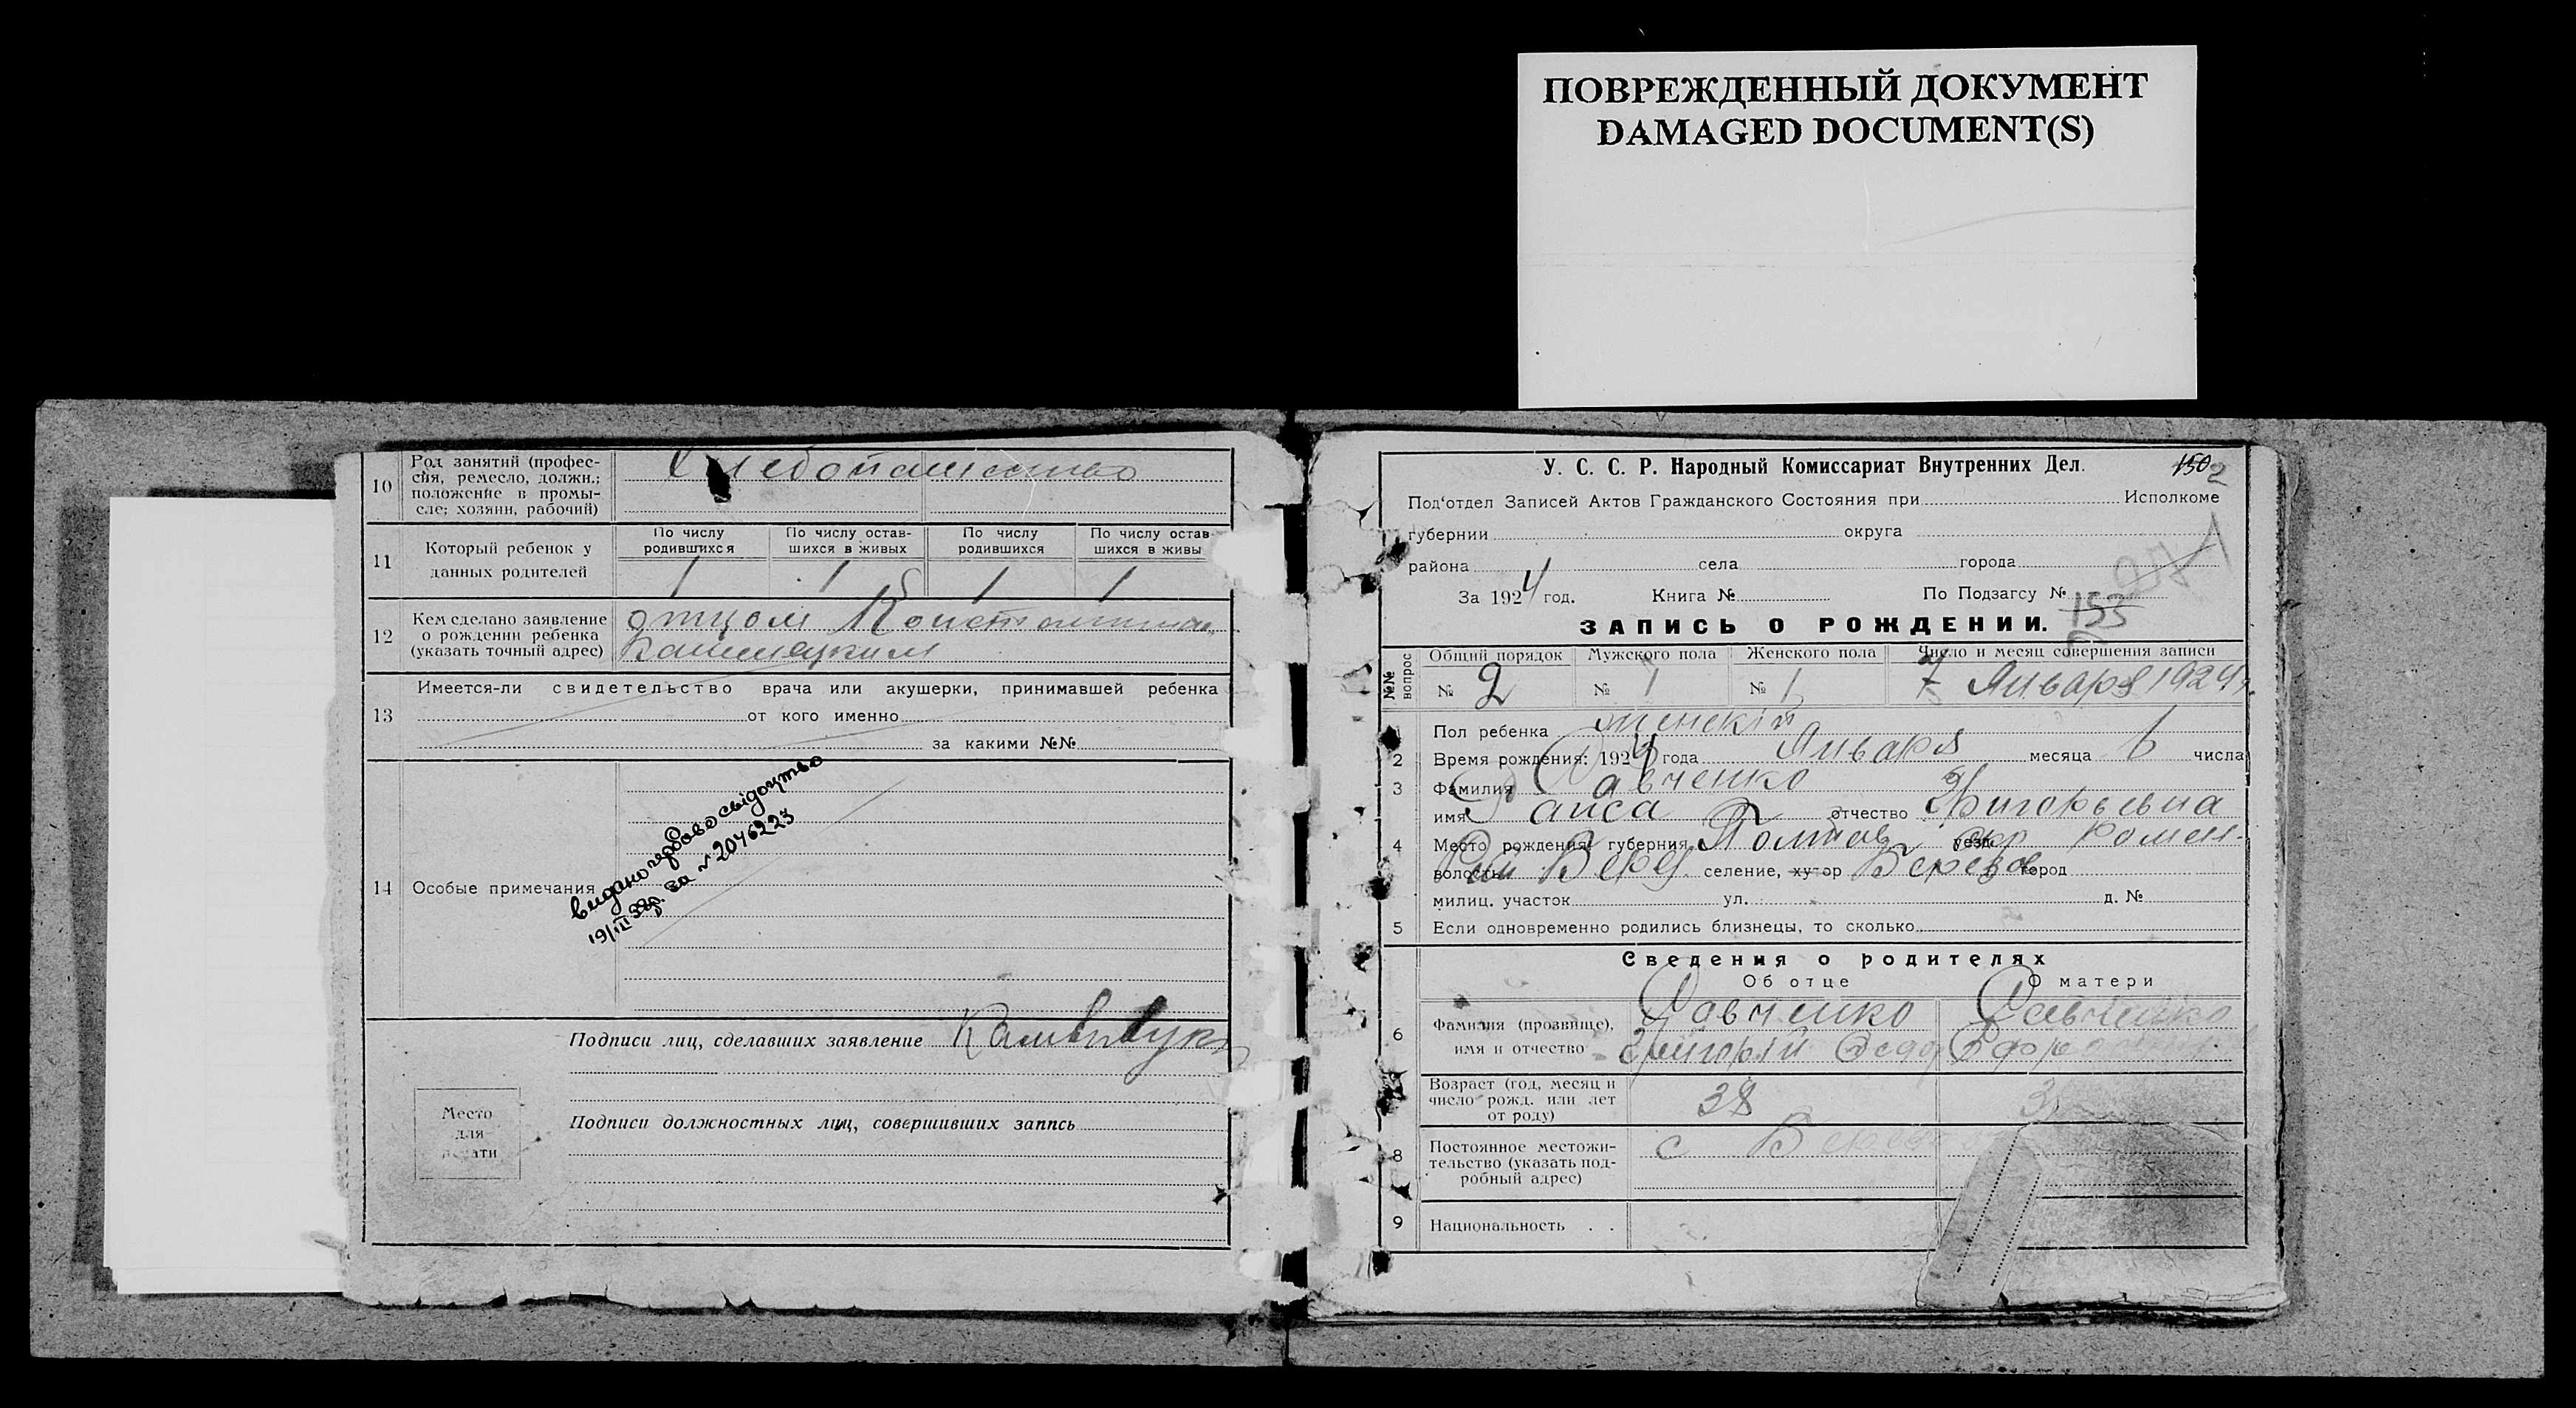 ПОВРЕЖДЕННЫЙ ДОКУМЕНТ
DAMAGED DOCUMENT(S)
10 Род занятий (профес-
сия, ремесло, должн.;
положение в промы-
сле; хозяин, рабочий)
Хлебопашество
11 Который ребенок у
данных родителей
По числу родившихся
По числу остав-
шихся в живых
По числу родившихся
По числу остав-
шихся в живы
1 1 1 1
12 Кем сделано заявление
о рождении ребенка
(указать точный адрес)
отцом
13 Имеется-ли свидетельство врача или акушерки, принимавшей ребенка
от кого именно
за какими №№
14 Особые примечания
видано
19/III за № 2046223
Подписи лиц, сделавших заявление
Подписи должностных лиц, совершивших запись
Место
для
печати
У. С. С. Р. Народный Комиссариат Внутренних Дел.
150 2
Под'отдел Записей Актов Гражданского Состояния при Исполкоме
губернии округа
района села города
За 1924 год. Книга № По Подзагсу № 153
ЗАПИСЬ О РОЖДЕНИИ.
№№ вопрос
Общий порядок Мужского пола Женского пола Число и месяц совершения записи
№ 2 № 1 № 1 7 Января 1924 г.
1 Пол ребенка женский
2 Время рождения: 1924 года Января месяца 6 числа
3 Фамилия Савченко
имя Раиса отчество Григорьевна
4 Место рождения: губерния Полтав уезд окр Ромен.
волость селение, хутор город
милиц. участок ул. д. №
5 Если одновременно родились близнецы, то сколько
Сведения о родителях
Об отце О матери
6 Фамилия (прозвище),
имя и отчество
Савченко Савченко
Григорій
Возраст (год, месяц и
число рожд. или лет
от роду)
38
8 Постоянное местожи-
тельство (указать под-
робный адрес)
с
9 Национальность . .